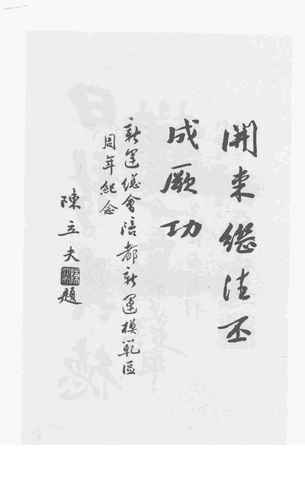 開来継往丕
成厥功
新運總會陪都新運模範區
周年紀念
陳立夫題